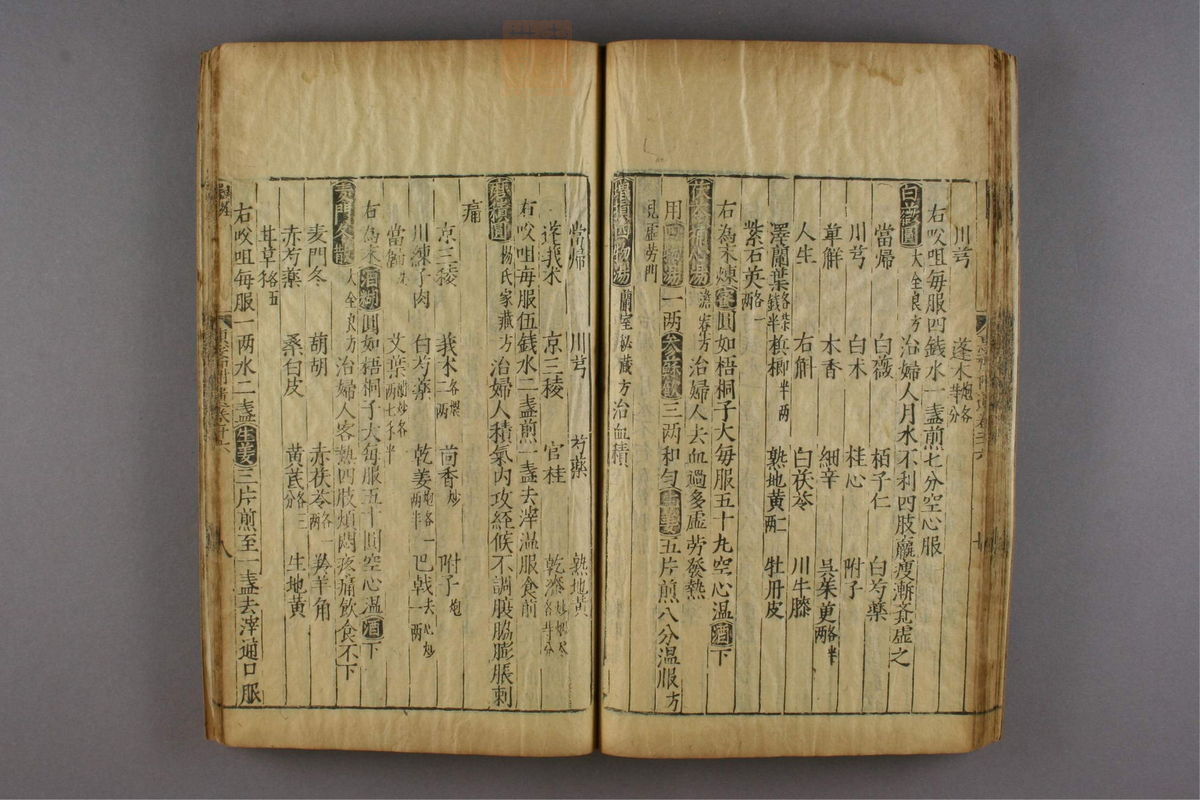 川芎 蓬术炮各半分
右㕮咀每服四錢水一盞煎七分空心服
白薇圓大全良方治婦人月水不利四肢羸瘦漸老虛乏
當歸 白薇 栢子仁 白芍藥
川芎 白术 桂心 附子
萆解 木香 細辛 吳茱更各半兩
人生 右斛 白茯苓 川牛膝
澤蘭葉 梹榔半兩 熟地黄二兩 牡丹皮
紫石英各一兩
右為末煉蜜圓如梧桐子大每服五十丸空心温酒下
茯苓補心湯澹寮方治婦人去血過多虛劳發熱
用四物湯一两參蘇飲三两和匀生姜五片煎八分温服方
見虛劳門
增損四物湯蘭室秘蔵方治血積
當歸 川芎 芍藥 熟地黄
蓬莪术 京三稜 官桂 乾漆炒烟尽各等分
右㕮咀每服伍錢水二盞煎一盞去滓温服食前
磨積圓楊氏家蔵方治婦人積氣内攻経候不調腹脇膨脹刺
痛
京三稜 莪术各二两 茴香炒 附子炮
川練子肉 白芍藥 乾姜炮各一两半 巴戟去心炒一两
當歸 艾葉醋炒各一两七錢半
右為末酒糊圓如梧桐子大每服五十圓空心温酒下
麦門冬散大全良方治婦人客熱四肢煩悶疼痛飲食不下
麦門冬 胡胡 赤茯苓各一两 羚羊角
赤芍藥 桑白皮 黄芪各三分 生地黄
甘草各五
右㕮咀每服一两水二盞生姜三片煎至一盞去滓通口服